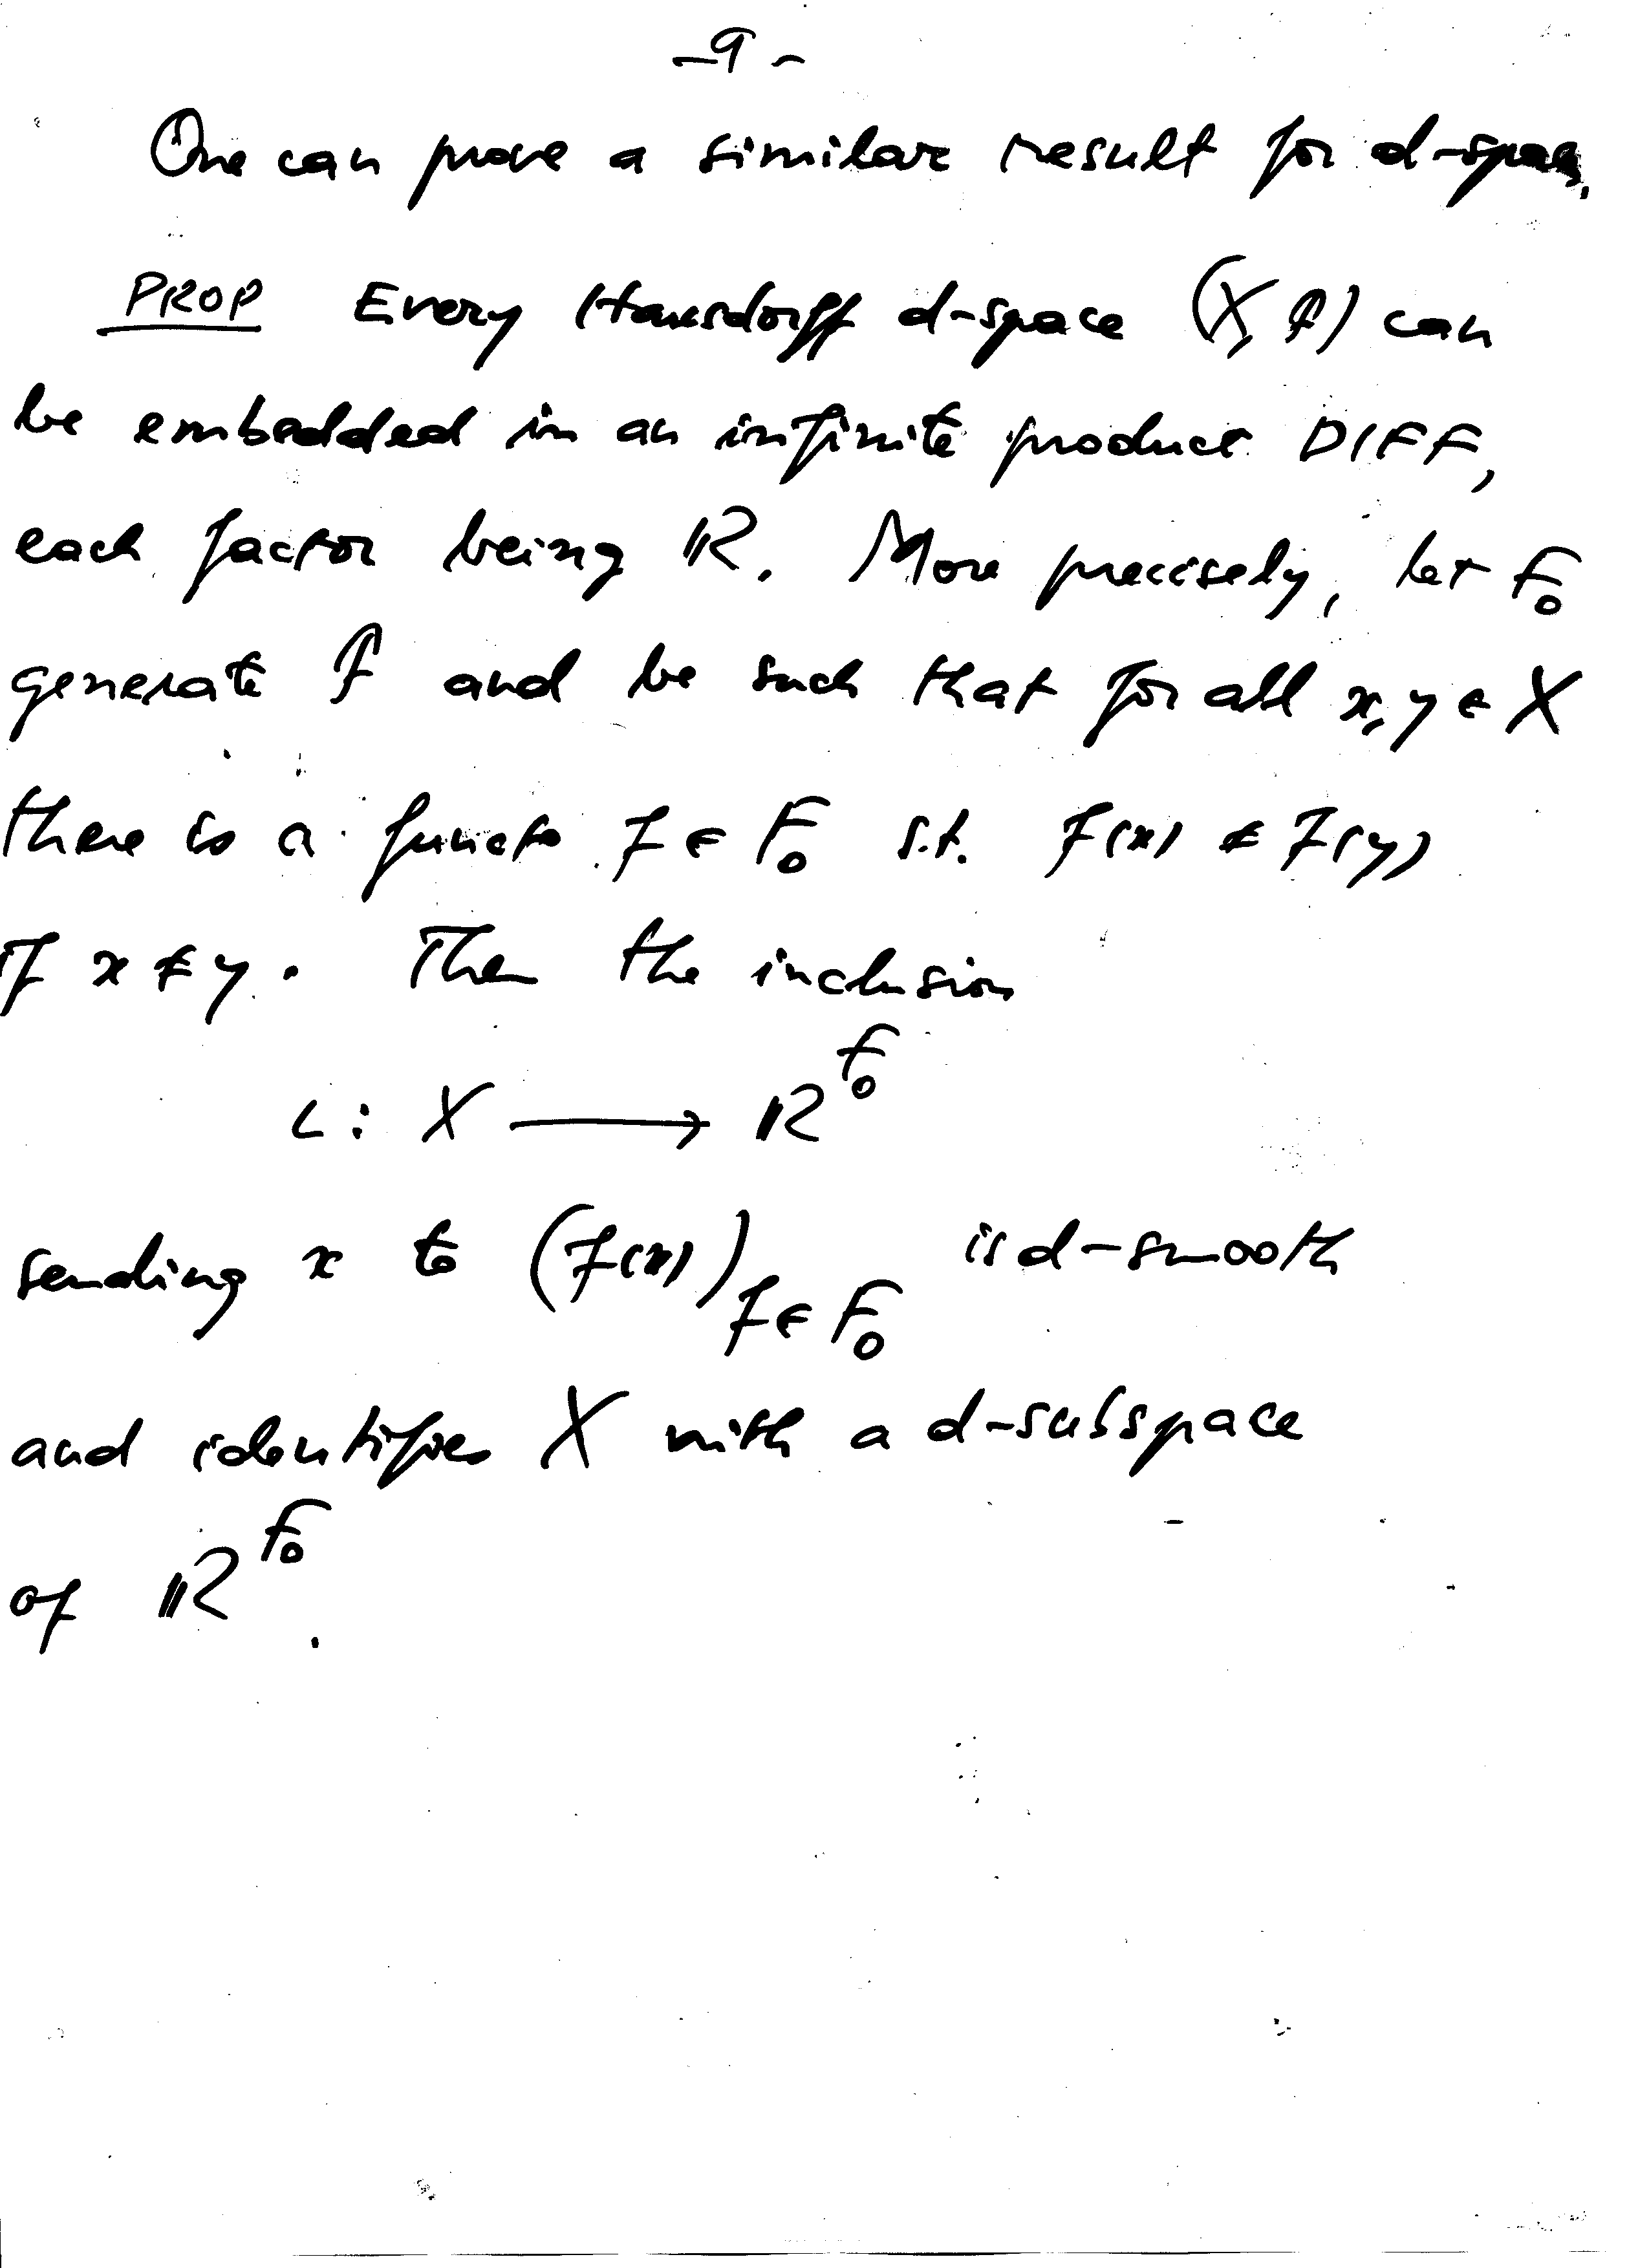 -9-
One can prove a similar result for d-spaces.
PROP Every Hausdorff d-space (X, ℱ) can
be embedded in an infinite product DIFF,
each factor being ℝ. More precisely, let F₀
generate ℱ and be such that for all x, y ∈ X
there is a functo f ∈ F₀ s.t. f(x) ≠ f(y)
if x ≠ y. Then the inclusion
ι : X ⟶ ℝ^F₀
sending x to (f(x))_f∈F₀ is d-smooth
and identifies X with a d-subspace
of ℝ^F₀.